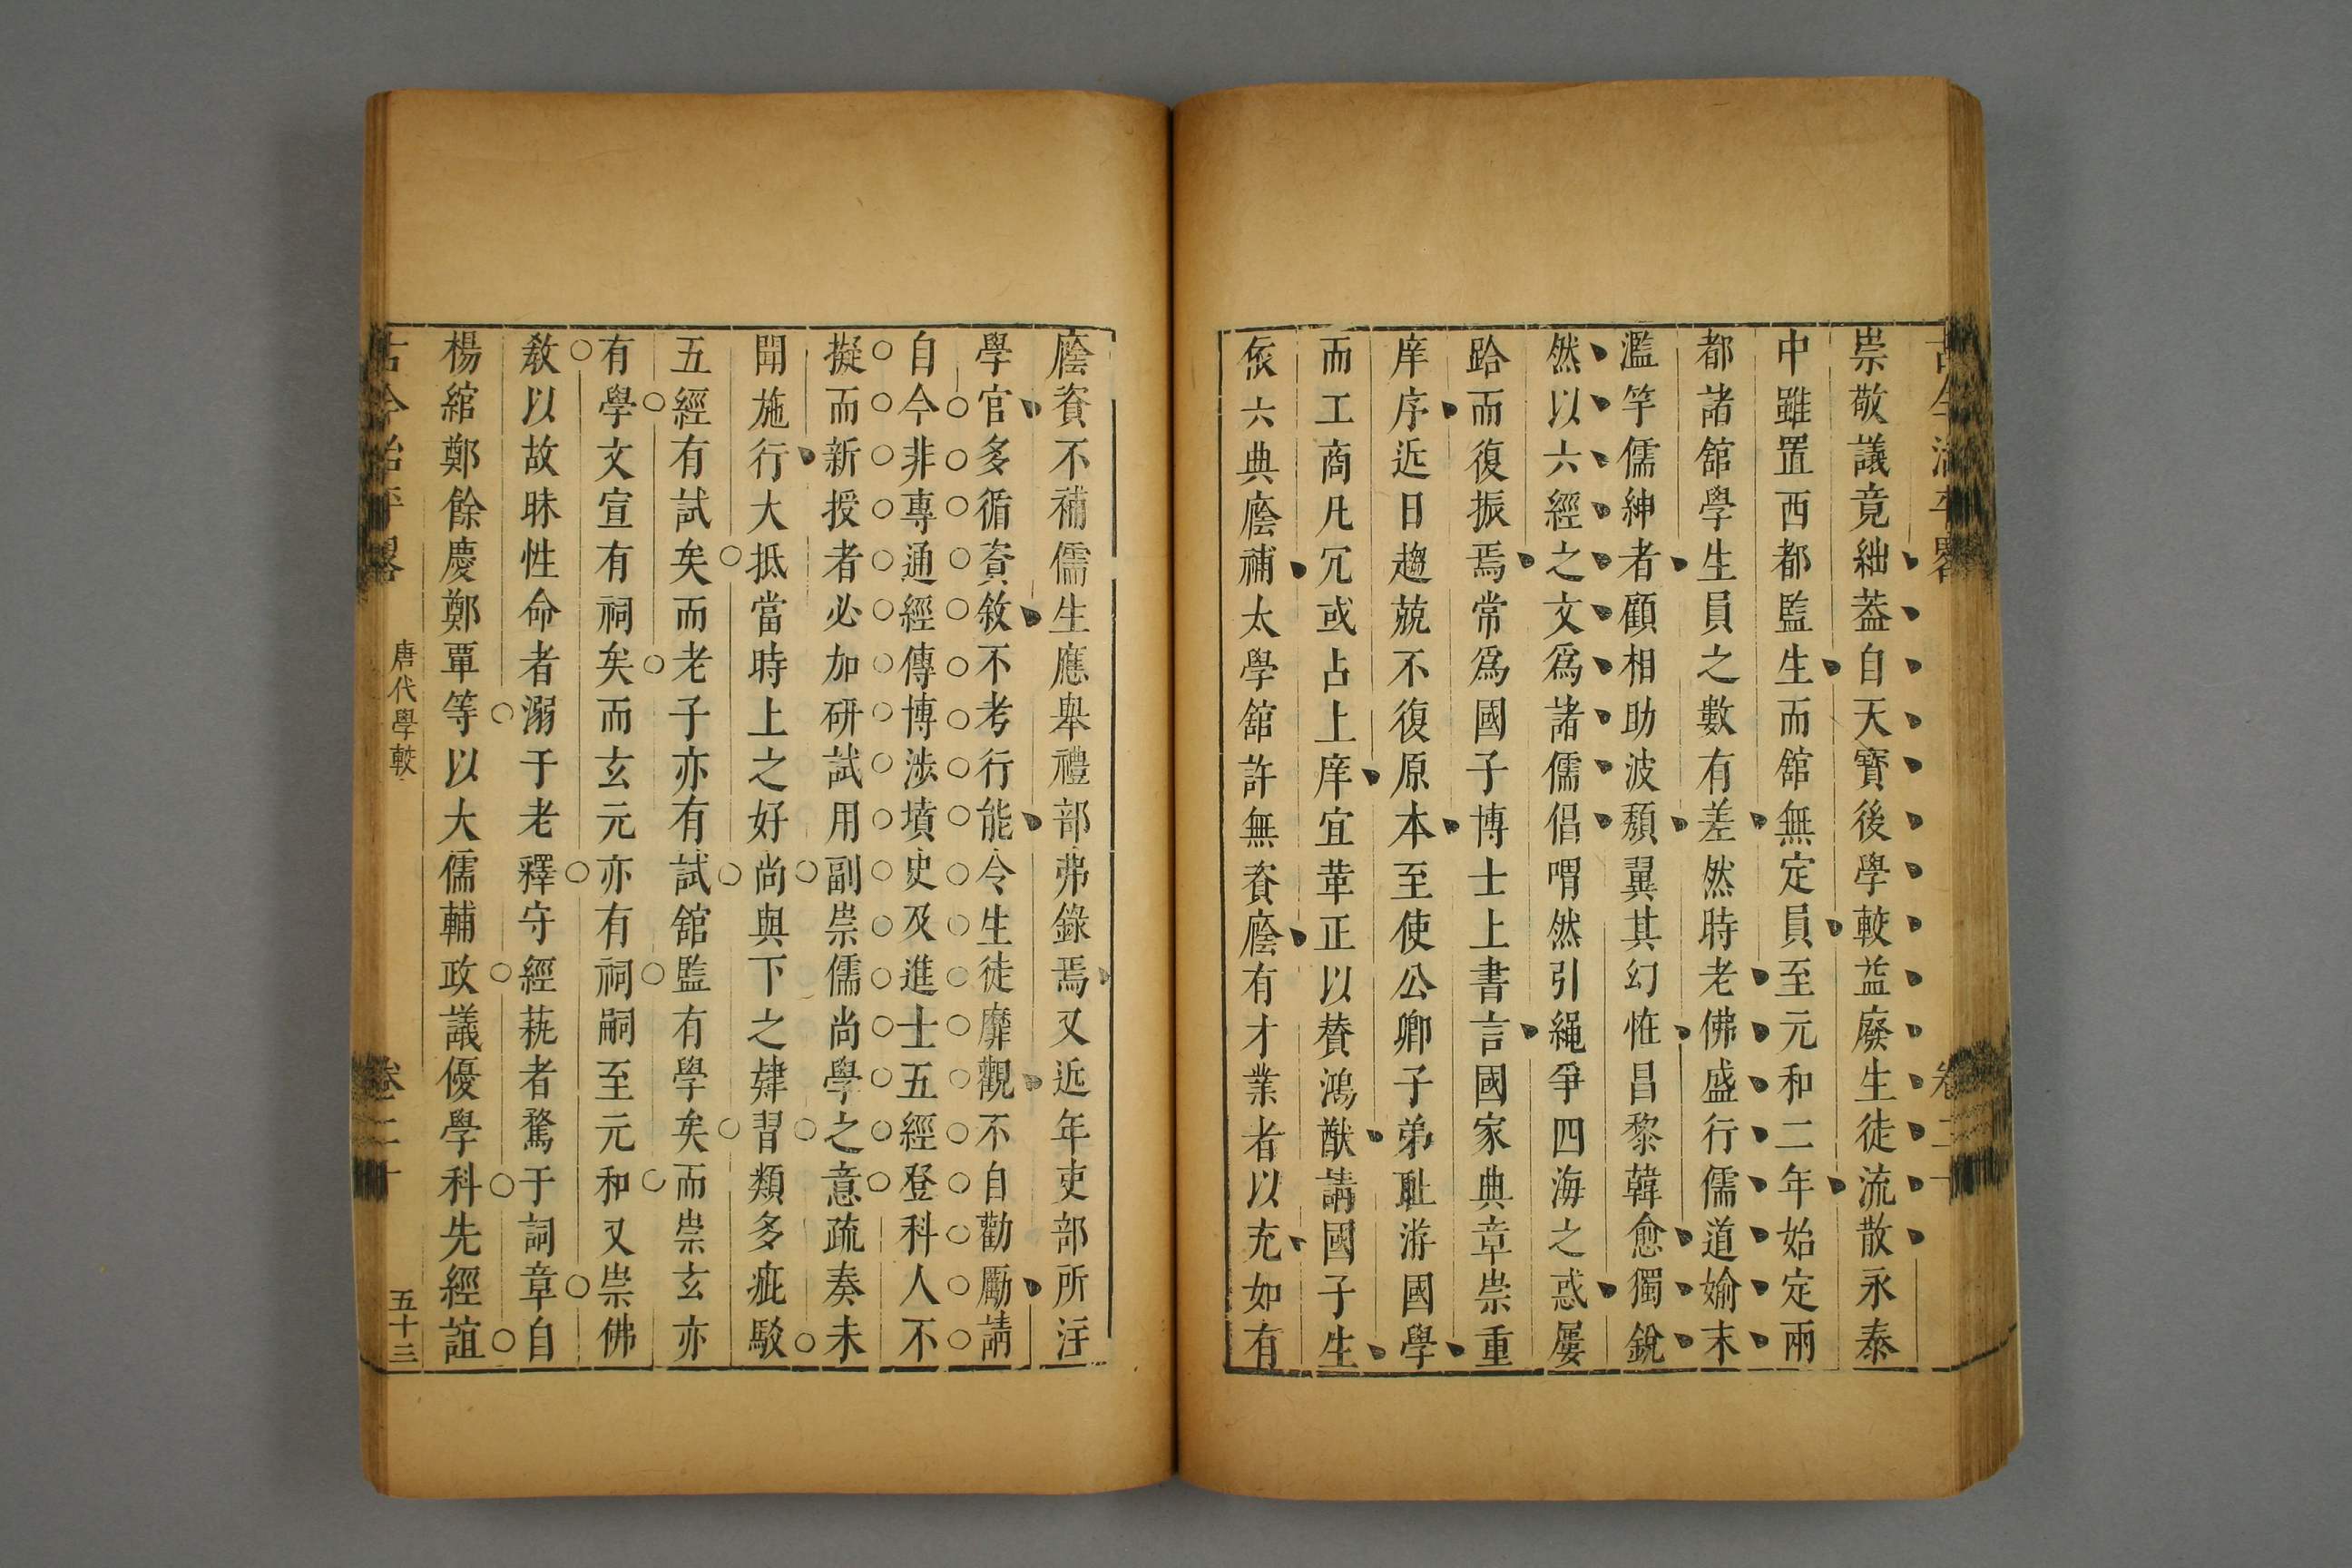 崇敬議竟絀葢自天寶後學較益廢生徒流散永泰
中雖置西都監生而舘無定員至元和二年始定兩
都諸舘學生員之數有差然時老佛盛行儒道婾末
濫竽儒紳者顧相助波頹翼其幻恠昌黎韓愈獨銳
然以六經之文爲諸儒倡喟然引繩爭四海之惑屢
跲而復振焉常爲國子博士上書言國家典章崇重
庠序近日趨兢不復原本至使公卿子弟耻游國學
而工商凡冗或占上庠宜革正以賛鴻猷請國子生
依六典廕補太學舘許無資廕有才業者以充如有
廕資不補儒生應舉禮部弗錄焉又近年吏部所注
學官多循資敘不考行能令生徒靡觀不自勸勵請
自今非專通經傳博涉墳史及進士五經登科人不
擬而新授者必加研試用副崇儒尚學之意疏奏未
開施行大抵當時上之好尚與下之肄習類多疵駁
五經有試矣而老子亦有試舘監有學矣而崇玄亦
有學文宣有祠矣而玄元亦有祠嗣至元和又崇佛
敎以故昧性命者溺于老釋守經蓺者騖于詞章自
楊綰鄭餘慶鄭覃等以大儒輔政議優學科先經誼
古今治平畧
唐代學較
卷二十
五十三